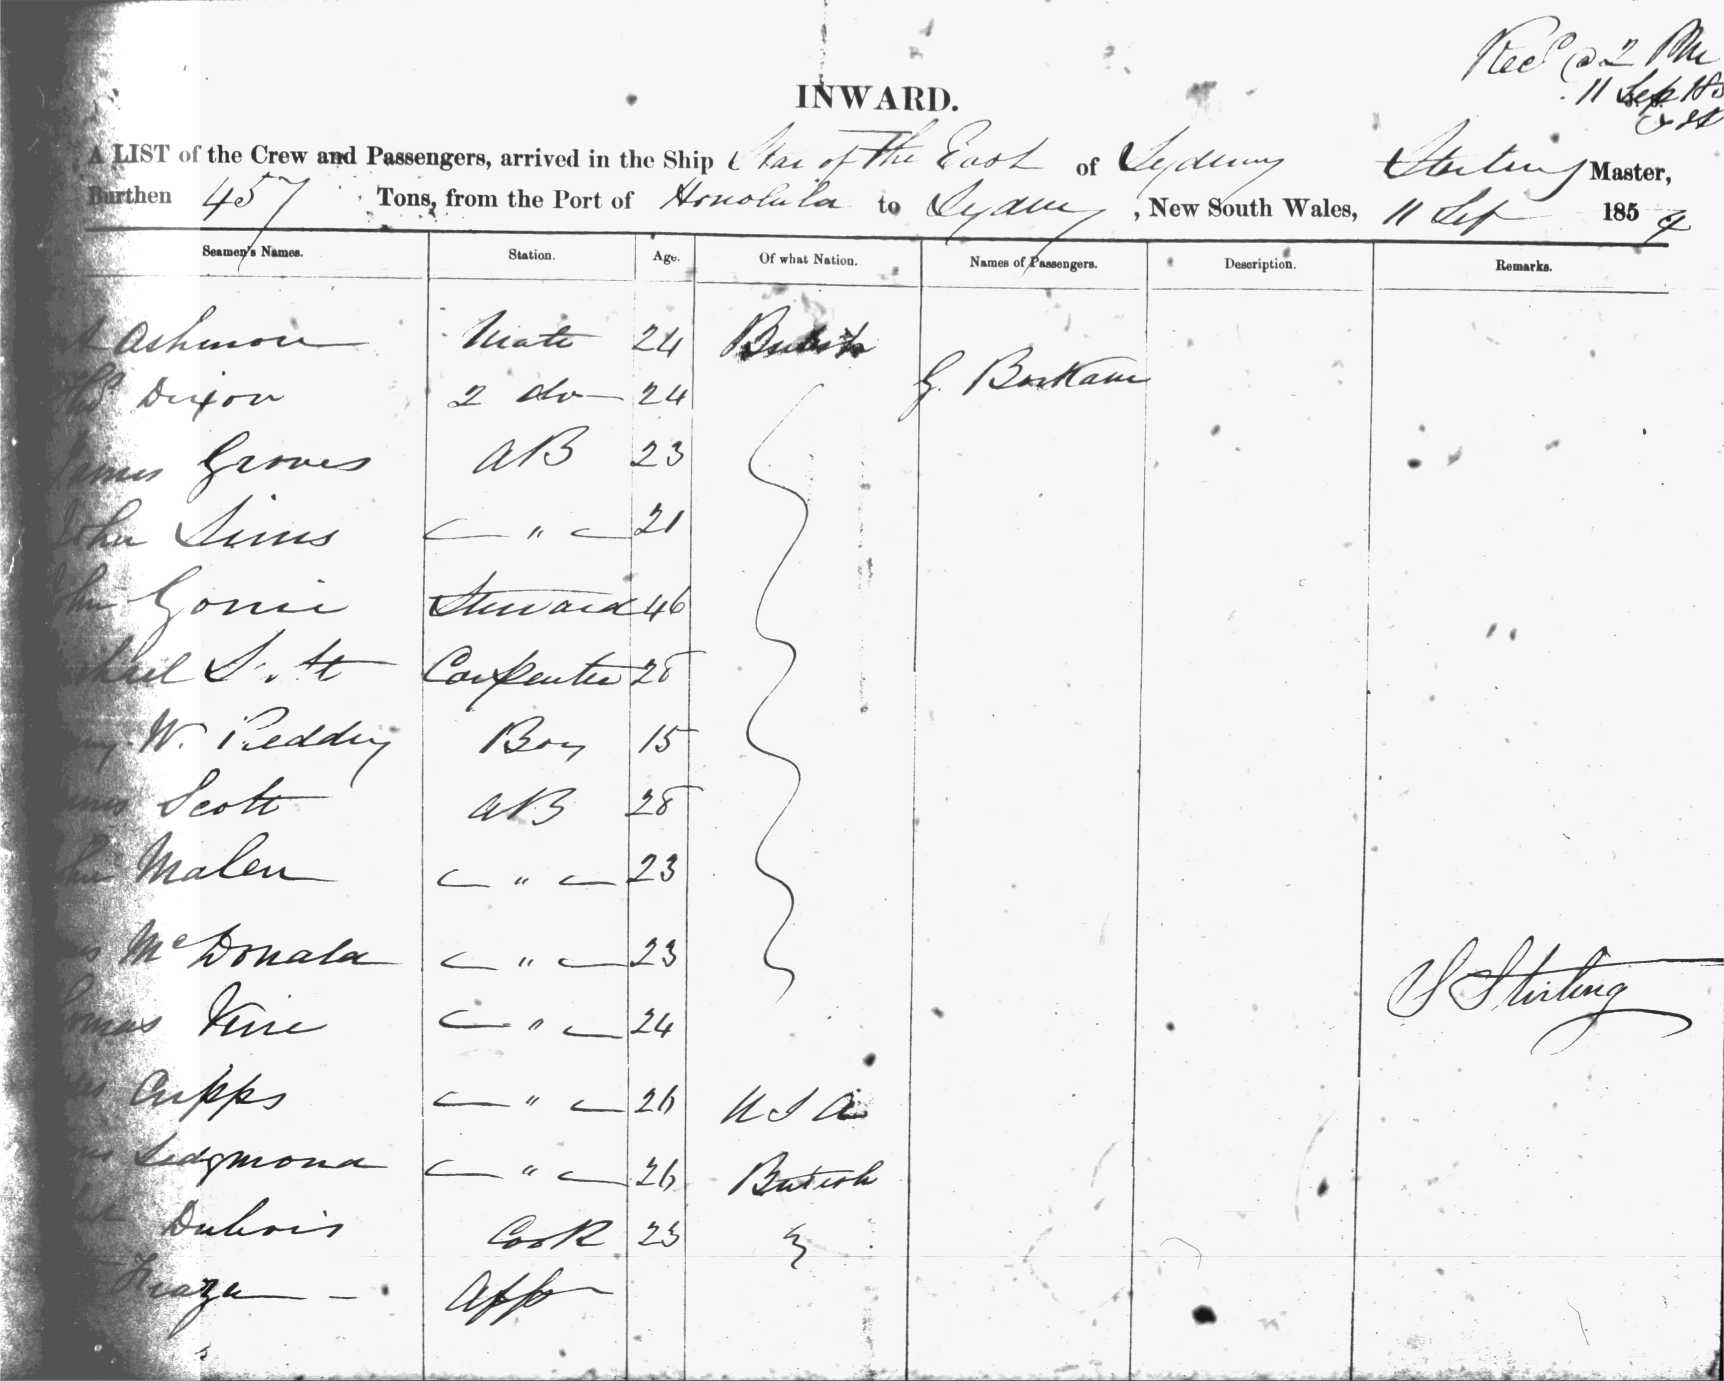 Recd @ 2 PM
11 Sep 185
INWARD.
A LIST of the Crew and Passengers, arrived in the Ship Star of the East of Sydney Stirling Master,
Burthen 457 Tons, from the Port of Honolulu to Sydney, New South Wales, 11 Sep 1854
Seamen's Names. Station. Age. Of what Nation. Names of Passengers. Description. Remarks.
A Ashmore Mate 24 British
G. Bonham
Thos Dixon 2 do 24
James Groves AB 23
John Sims " 21
John Gorrie Steward 46
Scott Carpenter 28
W. Reddy Boy 15
James Scott AB 28
John Malen " 23
McDonald " 23
S Stirling
Thomas Vine " 24
Cripps " 26 USA
Ledgmond " 26 British
Dubois Cook 23
Frazer Appr